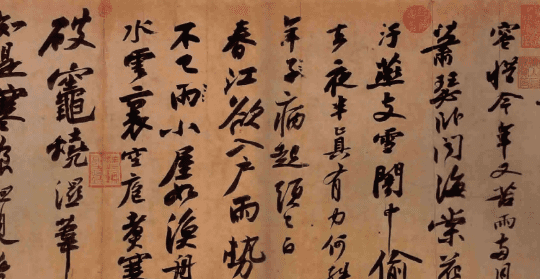 容惜今年又苦雨兩月
蕭瑟卧聞海棠花
汙燕支雪闇中偷
去夜半真有力何殊
年子病起頭已白
春江欲入戶雨勢
不已雨小屋如漁舟
水雲裏空庖煮寒
破竈燒濕葦
知是寒食但見